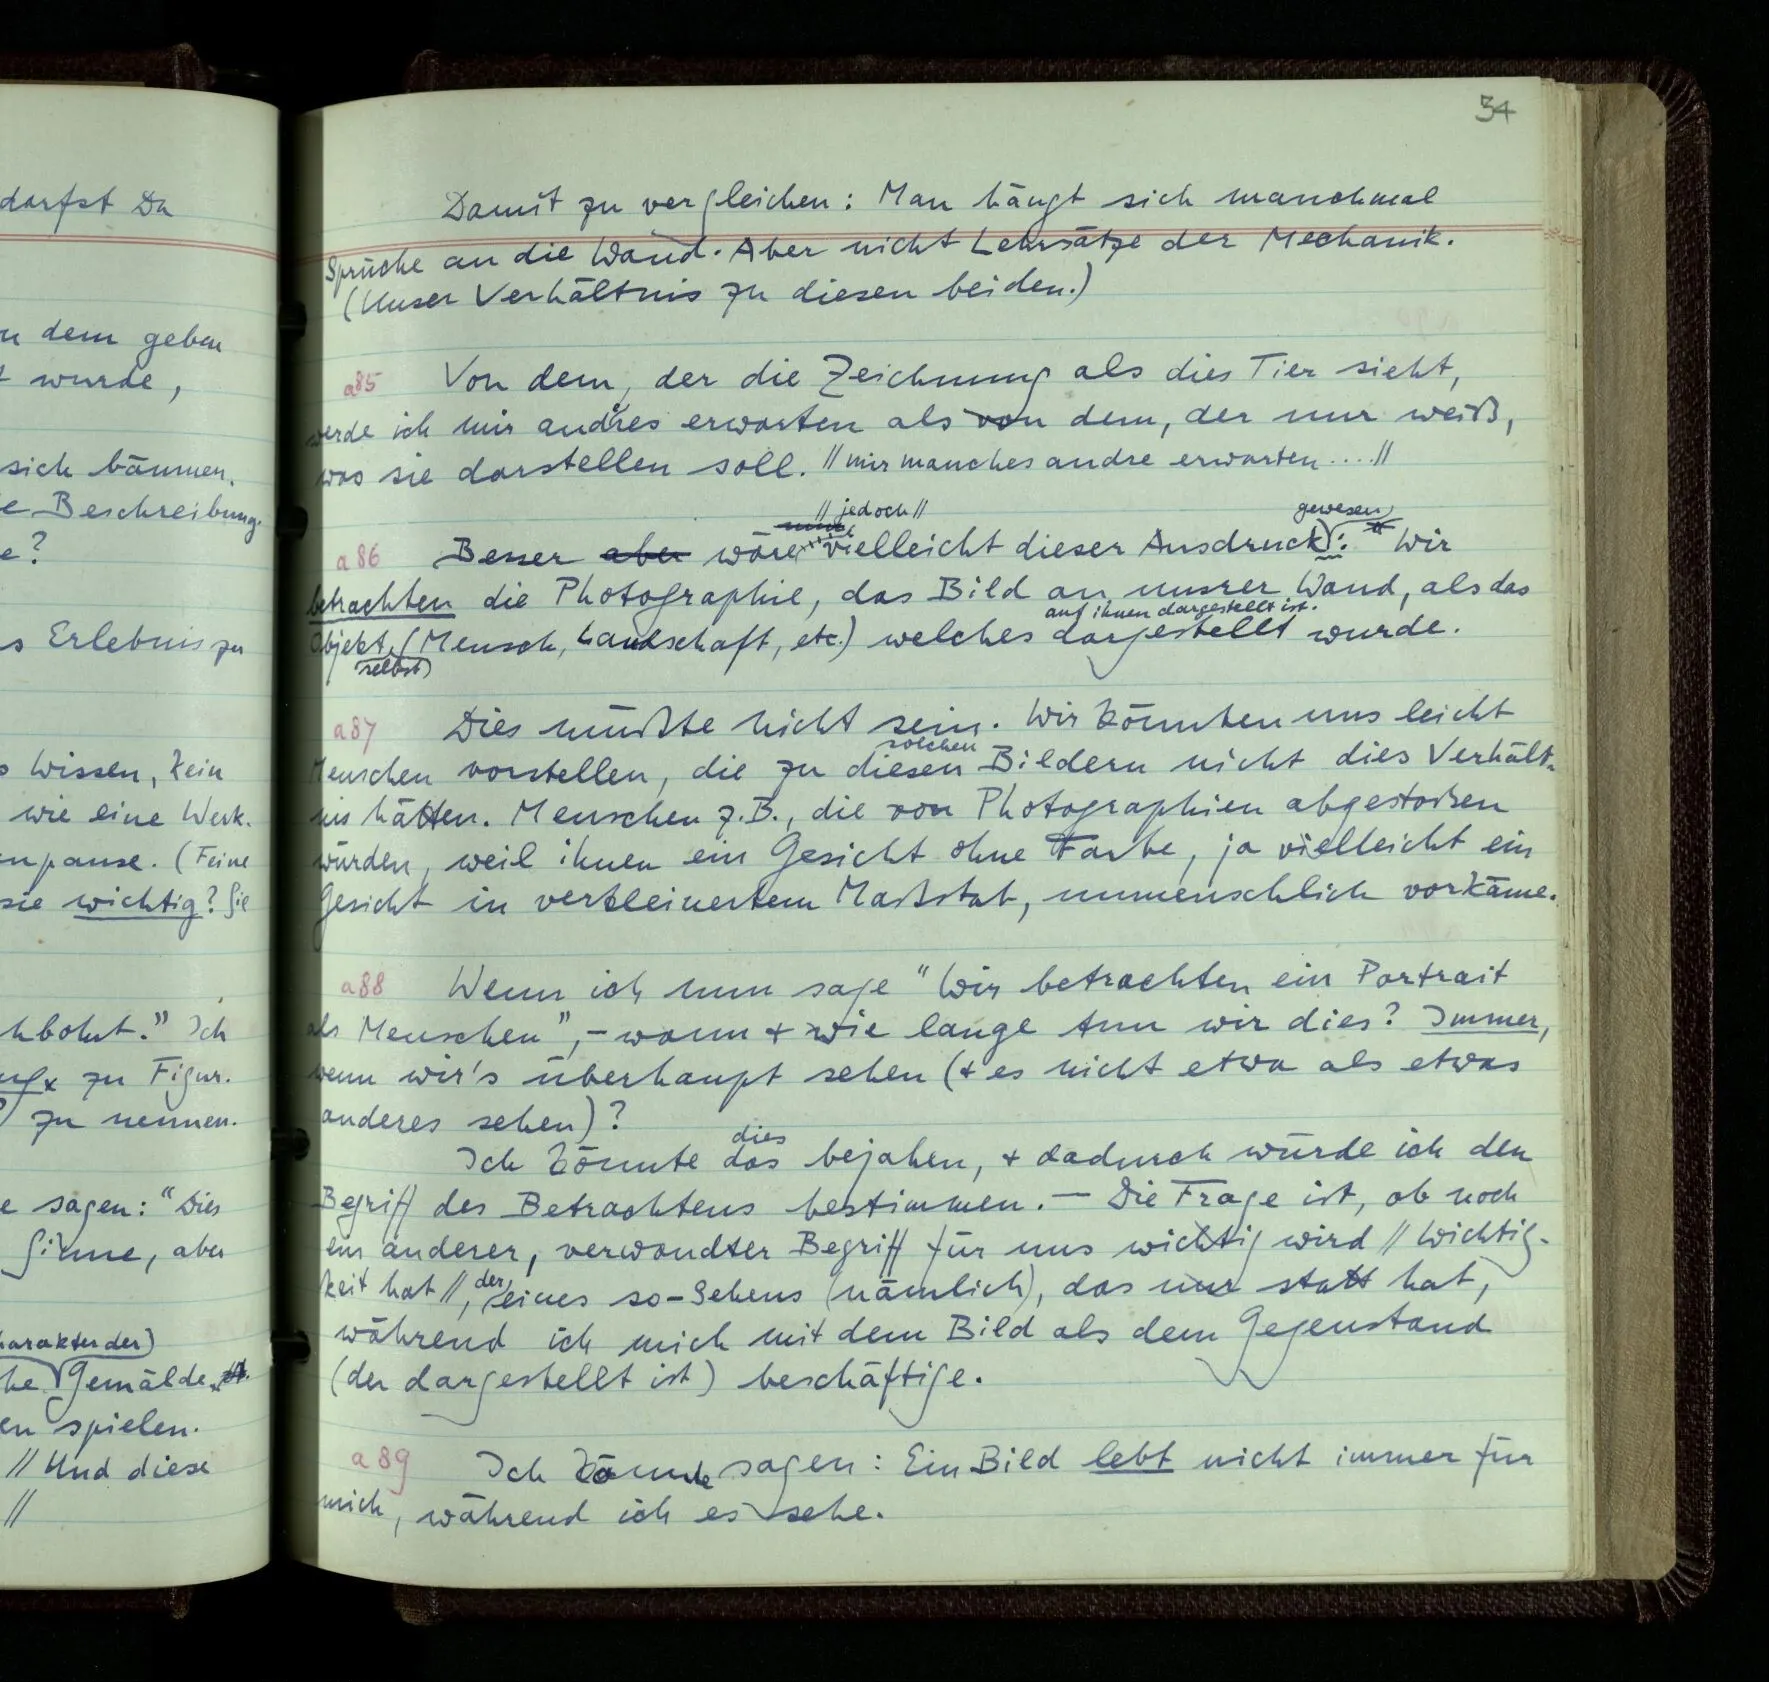 darfst Du
dem geben
wurde,
sich bäumen.
Beschreibung.
Erlebnis zu
Wissen, kein
wie eine Werk-
pause. (Feine
sie wichtig? Sie
Ich
zu Figur.
zu nennen.
sagen: "Dies
Sinne, aber
Charakter der)
Gemälde
spielen.
// Und diese
//
34
Damit zu vergleichen: Man hängt sich manchmal
Sprüche an die Wand. Aber nicht Lehrsätze der Mechanik.
(Unser Verhältnis zu diesen beiden.)
a85 Von dem, der die Zeichnung als dies Tier sieht,
werde ich mir andres erwarten als von dem, der nur weiß,
was sie darstellen soll. // mir manches andre erwarten .... //
// jedoch // gewesen
a86 Besser aber wäre vielleicht dieser Ausdruck: Wir
betrachten die Photographie, das Bild an unsrer Wand, als das
auf ihnen dargestellt ist.
Objekt (Mensch, Landschaft, etc.) welches dargestellt wurde.
selbst
a87 Dies müßte nicht sein. Wir könnten uns leicht
solchen
Menschen vorstellen, die zu diesen Bildern nicht dies Verhält-
nis hätten. Menschen z.B., die von Photographien abgestoßen
würden, weil ihnen ein Gesicht ohne Farbe, ja vielleicht ein
Gesicht in verkleinertem Maßstab, unmenschlich vorkäme.
a88 Wenn ich nun sage "Wir betrachten ein Portrait
als Menschen", – wann & wie lange tun wir dies? Immer,
wenn wir's überhaupt sehen (& es nicht etwa als etwas
anderes sehen)?
dies
Ich könnte das bejahen, & dadurch würde ich den
Begriff des Betrachtens bestimmen. – Die Frage ist, ob noch
ein anderer, verwandter Begriff für uns wichtig wird // Wichtig-
keit hat //, der eines so-Sehens (nämlich), das nur statt hat,
während ich mich mit dem Bild als dem Gegenstand
(der dargestellt ist) beschäftige.
a89 Ich könnte sagen: Ein Bild lebt nicht immer für
mich, während ich es sehe.